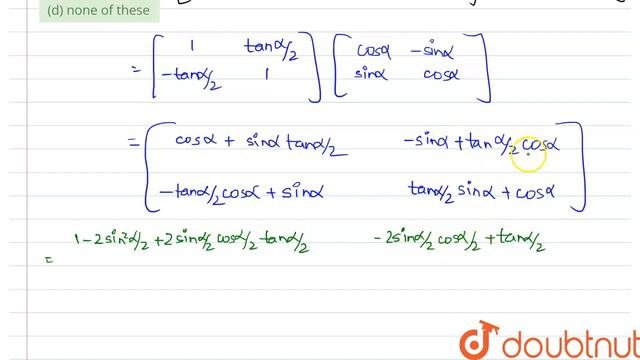 (d) none of these
= [ 1 tanα/2 ] [ cosα -sinα ]
[ -tanα/2 1 ] [ sinα cosα ]
= [ cosα + sinα tanα/2 -sinα + tanα/2 cosα ]
[ -tanα/2 cosα + sinα tanα/2 sinα + cosα ]
1 - 2sin²α/2 + 2sinα/2 cosα/2 tanα/2 - 2sinα/2 cosα/2 + tanα/2
=
doubtnut